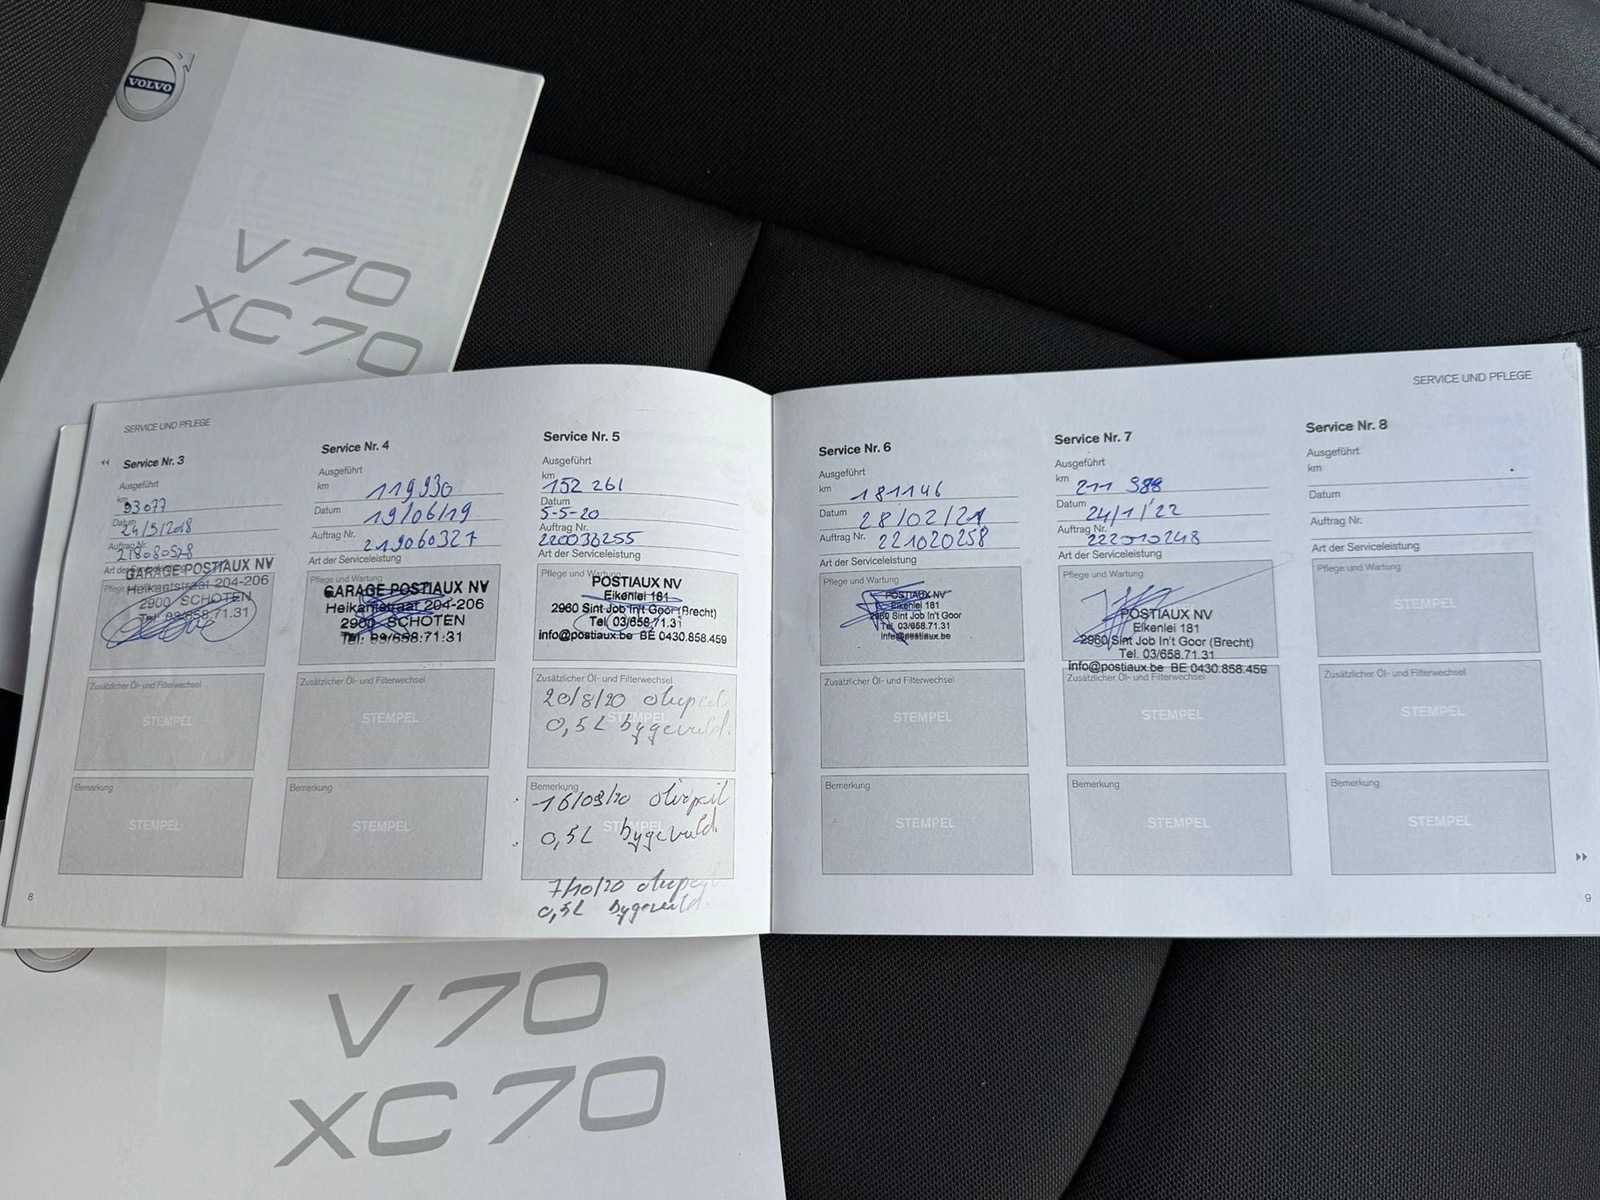 VOLVO
V 70
XC 70
SERVICE UND PFLEGE
Service Nr. 3
Ausgeführt
km
93077
Datum
24/5/2018
Auftrag Nr.
218080528
Art der Serviceleistung
Pflege
GARAGE POSTIAUX NV
Heikantstraat 204-206
2900 SCHOTEN
Tel. 03/658.71.31
Zusätzlicher Öl- und Filterwechsel
STEMPEL
Bemerkung
STEMPEL
8
Service Nr. 4
Ausgeführt
km 119930
Datum 19/06/19
Auftrag Nr. 219060327
Art der Serviceleistung
Pflege und Wartung
GARAGE POSTIAUX NV
Heikantstraat 204-206
2900 SCHOTEN
Tel. 03/658.71.31
Zusätzlicher Öl- und Filterwechsel
STEMPEL
Bemerkung
STEMPEL
Service Nr. 5
Ausgeführt
km
152 261
Datum
5-5-20
Auftrag Nr.
220036255
Art der Serviceleistung
Pflege und Wartung
POSTIAUX NV
Eikenlei 161
2960 Sint Job In't Goor (Brecht)
Tel. 03/658.71.31
info@postiaux.be BE 0430.858.459
Zusätzlicher Öl- und Filterwechsel
20/8/20 oliepeil
STEMPEL
0,5L bygevuld.
Bemerkung
-16/09/20 oliepeil
STEMPEL
0,5L bygevuld.
7/10/20 oliepeil
0,5L bygevuld.
SERVICE UND PFLEGE
Service Nr. 6
Ausgeführt
km 181146
Datum 28/02/21
Auftrag Nr. 221020258
Art der Serviceleistung
Pflege und Wartung
POSTIAUX NV
Eikenlei 181
2960 Sint Job In't Goor
Tel. 03/658.71.31
info@postiaux.be
Zusätzlicher Öl- und Filterwechsel
STEMPEL
Bemerkung
STEMPEL
Service Nr. 7
Ausgeführt
km 211 988
Datum 24/1/22
Auftrag Nr.
222010248
Art der Serviceleistung
Pflege und Wartung
POSTIAUX NV
Eikenlei 181
2960 Sint Job In't Goor (Brecht)
Tel. 03/658.71.31
info@postiaux.be BE 0430.858.459
Zusätzlicher Öl- und Filterwechsel
STEMPEL
Bemerkung
STEMPEL
Service Nr. 8
Ausgeführt
km
Datum
Auftrag Nr.
Art der Serviceleistung
Pflege und Wartung
STEMPEL
Zusätzlicher Öl- und Filterwechsel
STEMPEL
Bemerkung
STEMPEL
9
V 70
XC 70